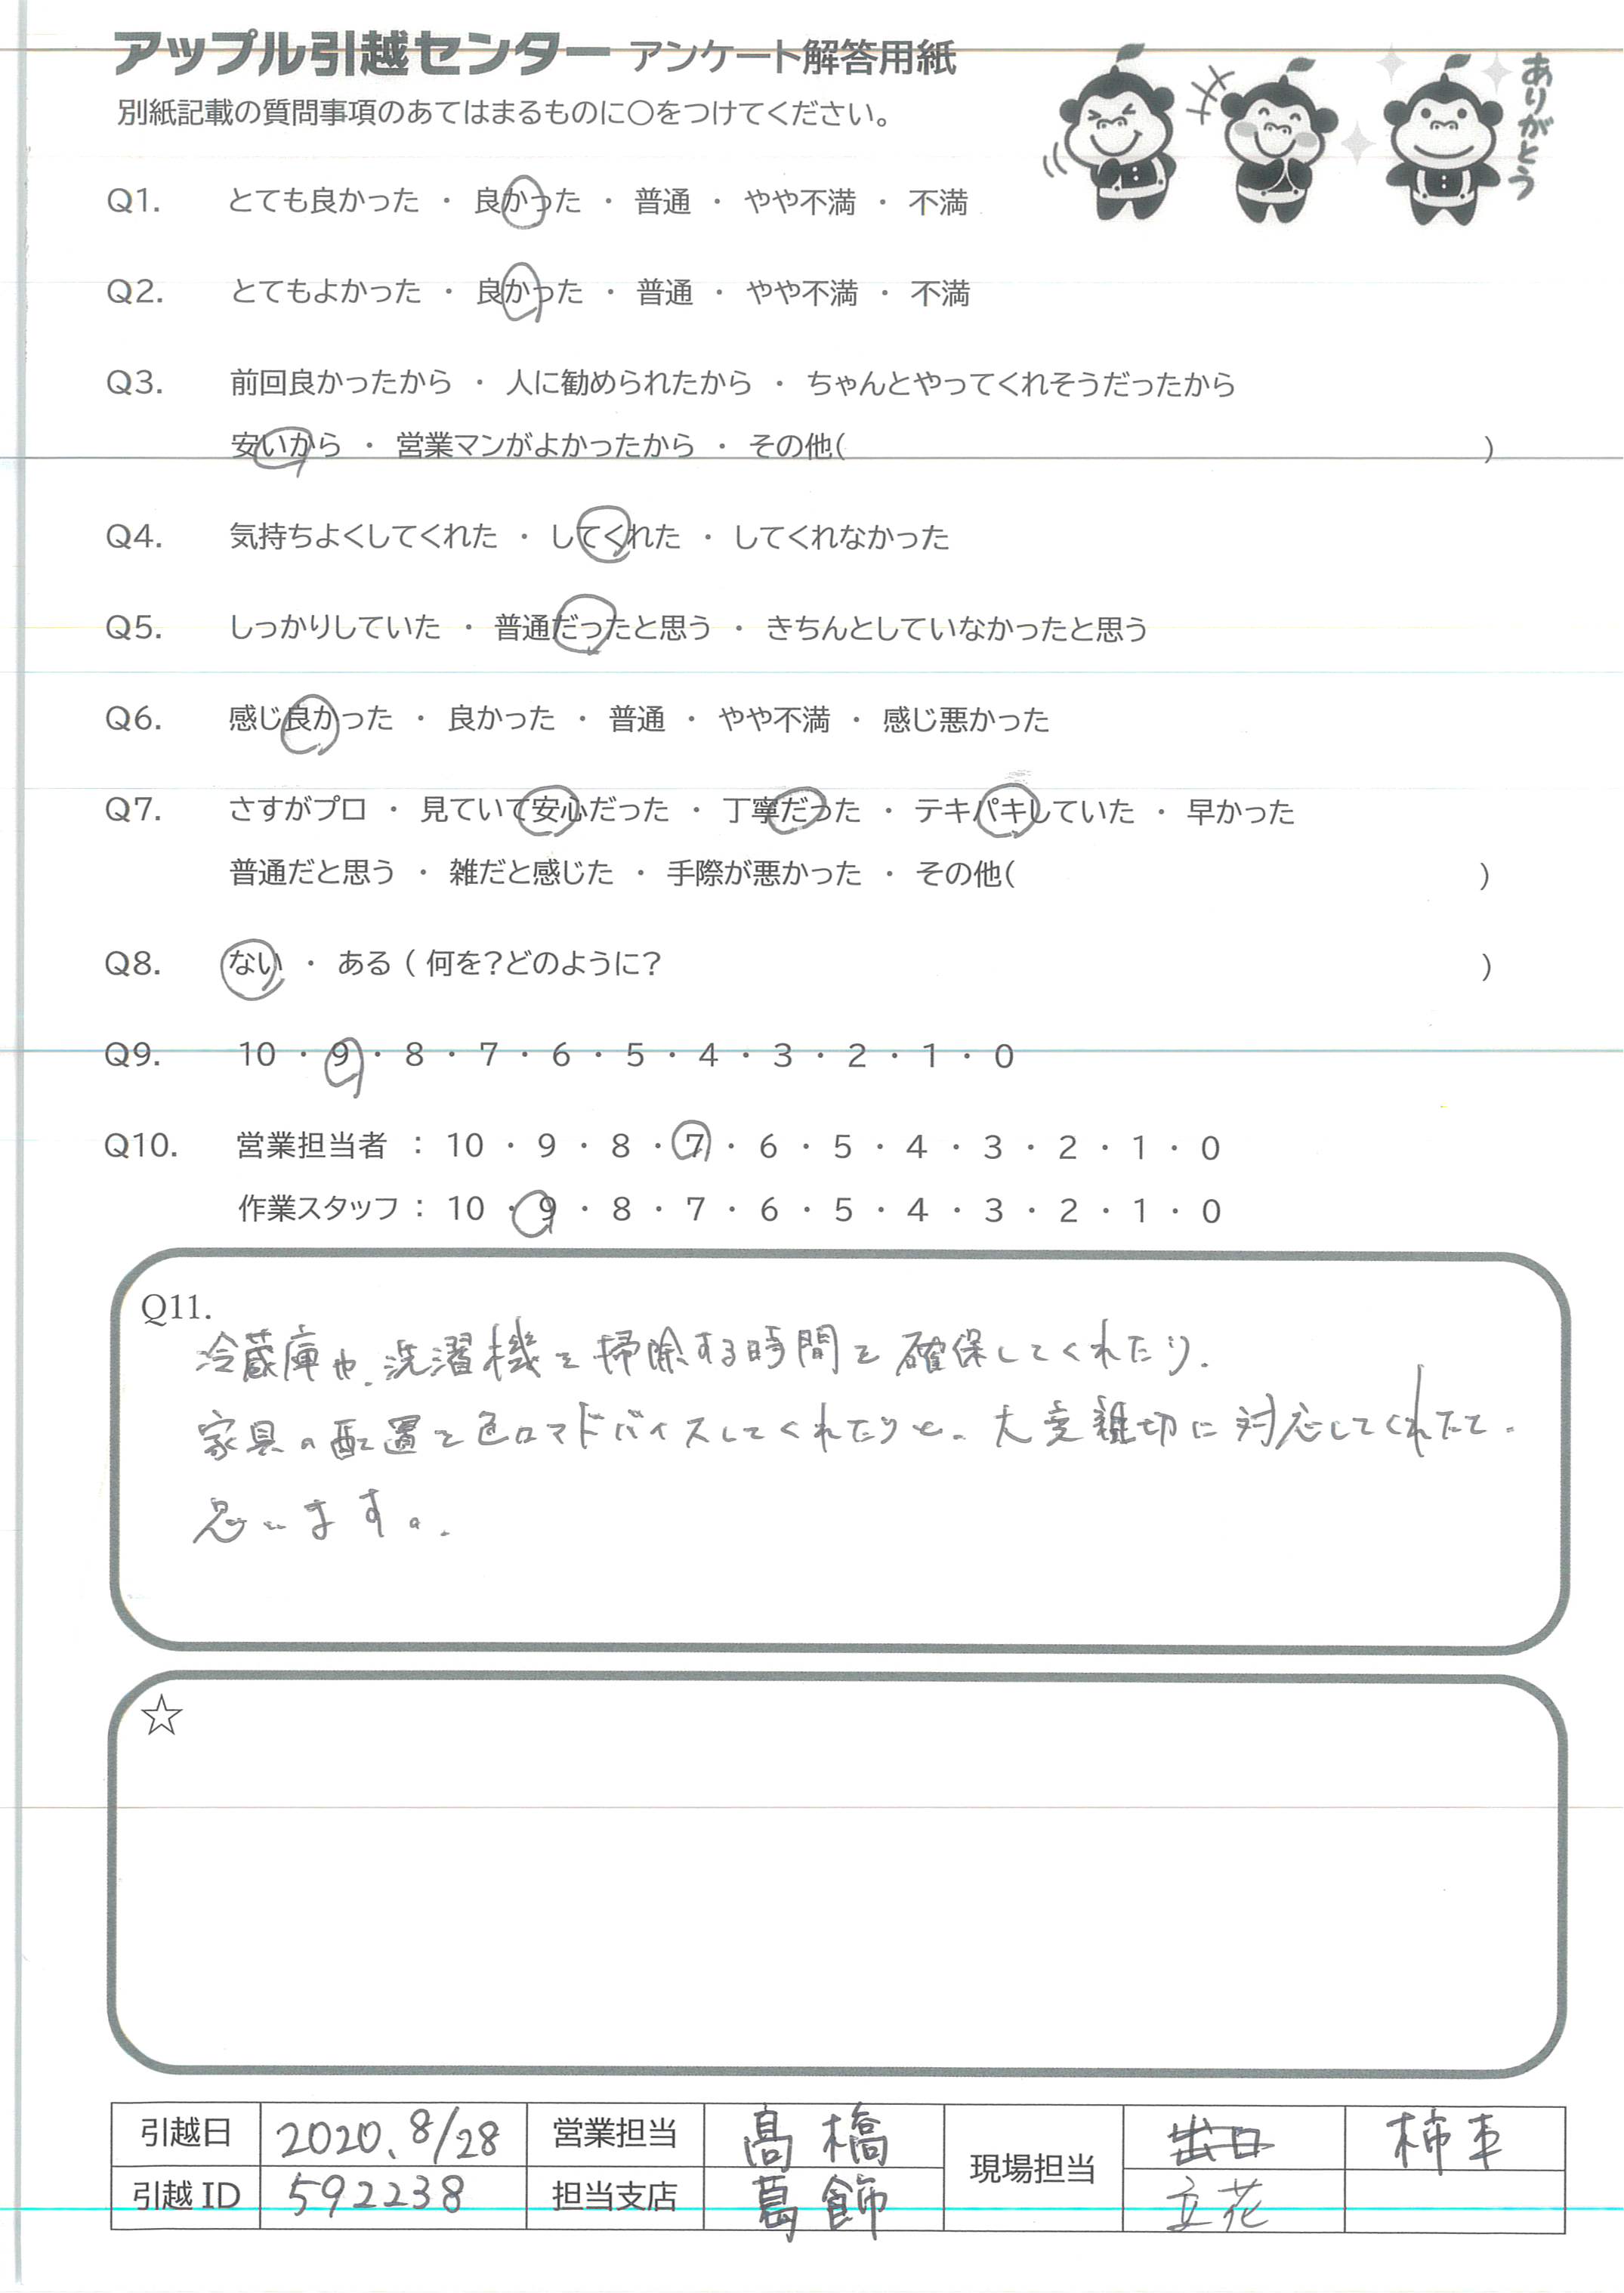 アップル引越センター アンケート解答用紙
ありがとう
別紙記載の質問事項のあてはまるものに○をつけてください。
Q1. とても良かった ・ 良かった ・ 普通 ・ やや不満 ・ 不満
Q2. とてもよかった ・ 良かった ・ 普通 ・ やや不満 ・ 不満
Q3. 前回良かったから ・ 人に勧められたから ・ ちゃんとやってくれそうだったから
安いから ・ 営業マンがよかったから ・ その他( )
Q4. 気持ちよくしてくれた ・ してくれた ・ してくれなかった
Q5. しっかりしていた ・ 普通だったと思う ・ きちんとしていなかったと思う
Q6. 感じ良かった ・ 良かった ・ 普通 ・ やや不満 ・ 感じ悪かった
Q7. さすがプロ ・ 見ていて安心だった ・ 丁寧だった ・ テキパキしていた ・ 早かった
普通だと思う ・ 雑だと感じた ・ 手際が悪かった ・ その他( )
Q8. ない ・ ある ( 何を?どのように? )
Q9. 10 ・ 9 ・ 8 ・ 7 ・ 6 ・ 5 ・ 4 ・ 3 ・ 2 ・ 1 ・ 0
Q10. 営業担当者 : 10 ・ 9 ・ 8 ・ 7 ・ 6 ・ 5 ・ 4 ・ 3 ・ 2 ・ 1 ・ 0
作業スタッフ : 10 ・ 9 ・ 8 ・ 7 ・ 6 ・ 5 ・ 4 ・ 3 ・ 2 ・ 1 ・ 0
Q11.
冷蔵庫や、洗濯機を掃除する時間を確保してくれたり、
家具の配置を色々アドバイスしてくれたりと、大変親切に対応してくれたと
思います。
☆
引越日 2020.8/28 営業担当 髙橋 現場担当 出口 柿本
引越ID 592238 担当支店 葛飾 立花